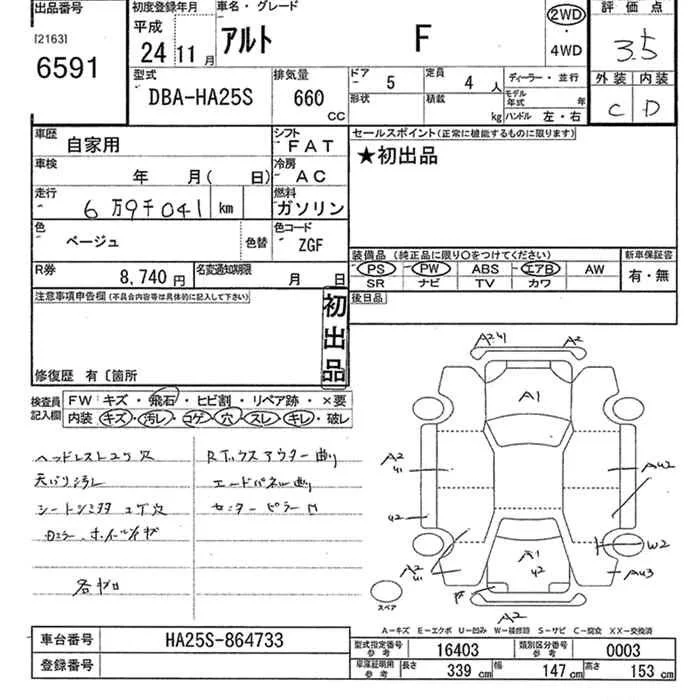 出品番号
[2163]
6591
初度登録年月
平成
24 11月
車名・グレード
アルト F
2WD
・
4WD
評価点
3.5
外装 内装
C D
型式
DBA-HA25S
排気量
660
CC
ドア 5
定員 4人
ディーラー・並行
形状
積載 kg
モデル年式 年
ハンドル 左・右
車歴 自家用
シフト FAT
車検 年 月( 日)
冷房 AC
走行 6万9千041 km
燃料 ガソリン
色 ベージュ
色替
色コード ZGF
R券 8,740円
名変通知期限 月 日
セールスポイント(正常に機能するものに限ります)
★初出品
装備品 (純正品に限り○をつけてください)
PS PW ABS エアB AW
SR ナビ TV カワ
新車保証書
有・無
後日品
注意事項申告欄(不具合内容等は具体的に記入して下さい)
初出品
修復歴 有〔箇所
検査員記入欄
FW キズ・飛石・ヒビ割・リペア跡・×要
内装 キズ・汚レ・コゲ・穴・スレ・キレ・破レ
ヘッドレストコゲ穴
天バリ汚レ
シートシミ多々コゲ穴
各サビ
Rボックスアウター曲り
エンドパネル曲り
センターピラー凹
A2 U1
A2
A1
A2
U1
U2
AU2
W2
AU3
A2
U1
A1
U2
A2
スペア
A-キズ E-エクボ U-凹み W-補修跡 S-サビ C-腐食 XX-交換済
車台番号 HA25S-864733
登録番号
型式指定番号 参考 16403
類別区分番号 参考 0003
車庫証明用 参考
長さ 339 cm
幅 147 cm
高さ 153 cm